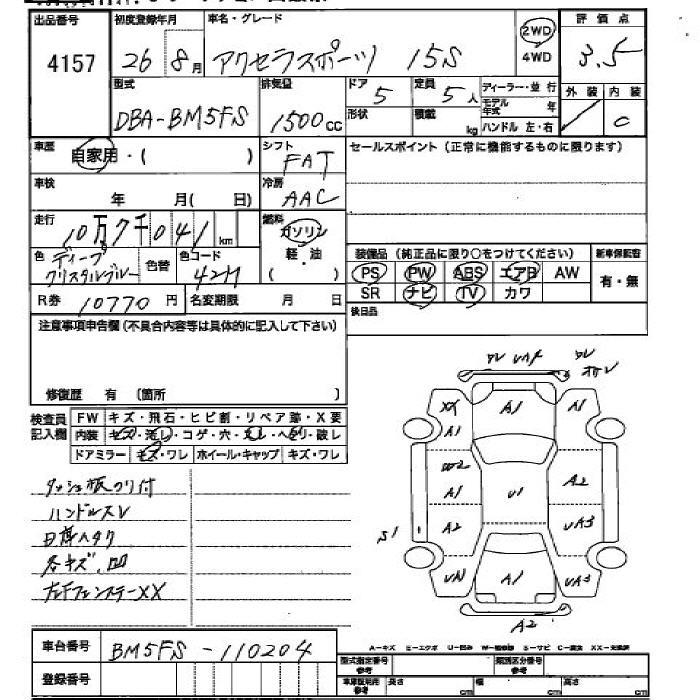 出品番号 初度登録年月 車名・グレード 2WD 4WD 評価点
4157 26 8月 アクセラスポーツ 15S 3.5
型式 排気量 ドア 定員 ディーラー・並行 外装 内装
DBA-BM5FS 1500cc 5 5人 モデル年式 年 C
形状 積載 kg ハンドル 左・右
車歴 自家用・( ) シフト FAT セールスポイント(正常に機能するものに限ります)
車検 年 月( 日) 冷房 AAC
走行 10万7千041km 燃料 ガソリン 軽・油 ( )
色 ディープクリスタルブルー 色替 色コード 42M
装備品(純正品に限り○をつけてください) 新車保証書
PS PW ABS エアB AW 有・無
SR ナビ TV カワ
R券 10770円 名変期限 月 日 後日品
注意事項申告欄(不具合内容等は具体的に記入して下さい)
修復歴 有 〔箇所 〕
検査員記入欄 FW キズ・飛石・ヒビ割・リペア跡・X要
内装 キズ・汚レ・コゲ・穴・スレ・ヘタリ・破レ
ドアミラー キズ・ワレ ホイール・キャップ キズ・ワレ
ダッシュ板のり付
ハンドルスレ
各キズ、凹
左Fフェンダー XX
ワレ UA4 ワレ
XX A1 A1 A1
W2 A1 U1 A2
S1 A2 UA3
A1 UA3
A2
A-キズ E-エクボ U-凹み W-補修跡 S-サビ C-腐食 XX-交換済
車台番号 BM5FS-110204
登録番号
型式指定番号 参考 類別区分番号 参考
車庫証明用 参考 長さ cm 幅 cm 高さ cm